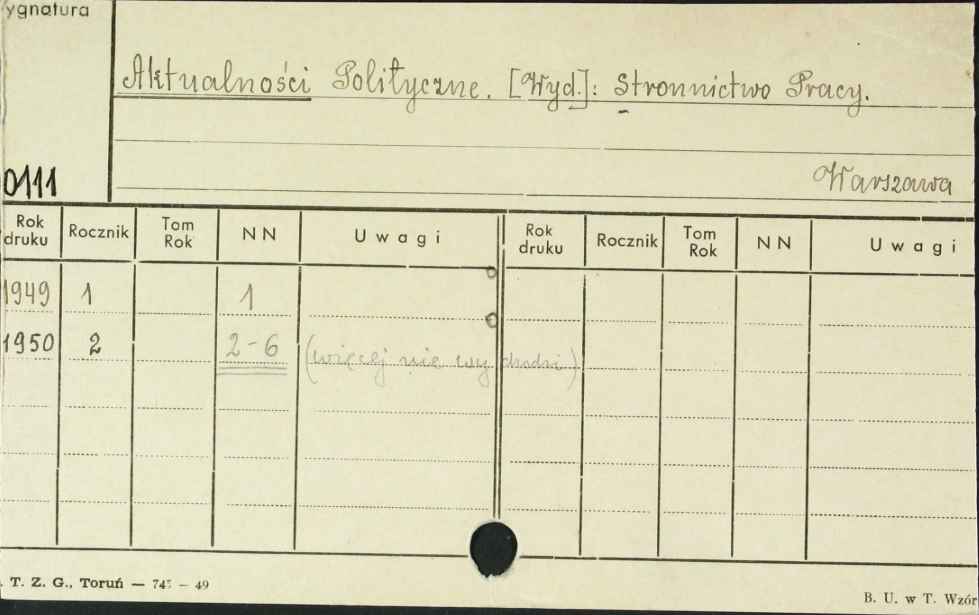 ygnatura
Aktualności Polityczne. [Wyd.]: Stronnictwo Pracy.
0111
Warszawa
Rok druku Rocznik Tom Rok NN Uwagi Rok druku Rocznik Tom Rok NN Uwagi
1949 1 1
1950 2 2-6 (więcej nie wychodzi)
. T. Z. G., Toruń — 745 — 49
B. U. w T. Wzór